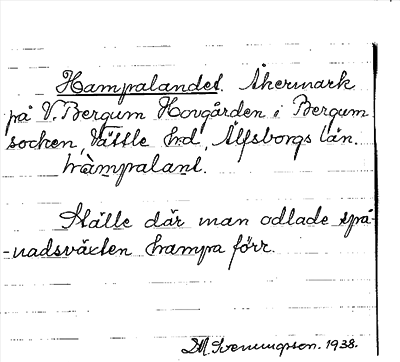 Hampalandet. Åkermark
på V. Bergum Hovgården i Bergum
socken, Vättle hd, Älfsborgs län.
hàmpalant.
Ställe där man odlade spå-
-nadsväxten hampa förr.
D.M. Svenungson. 1938.